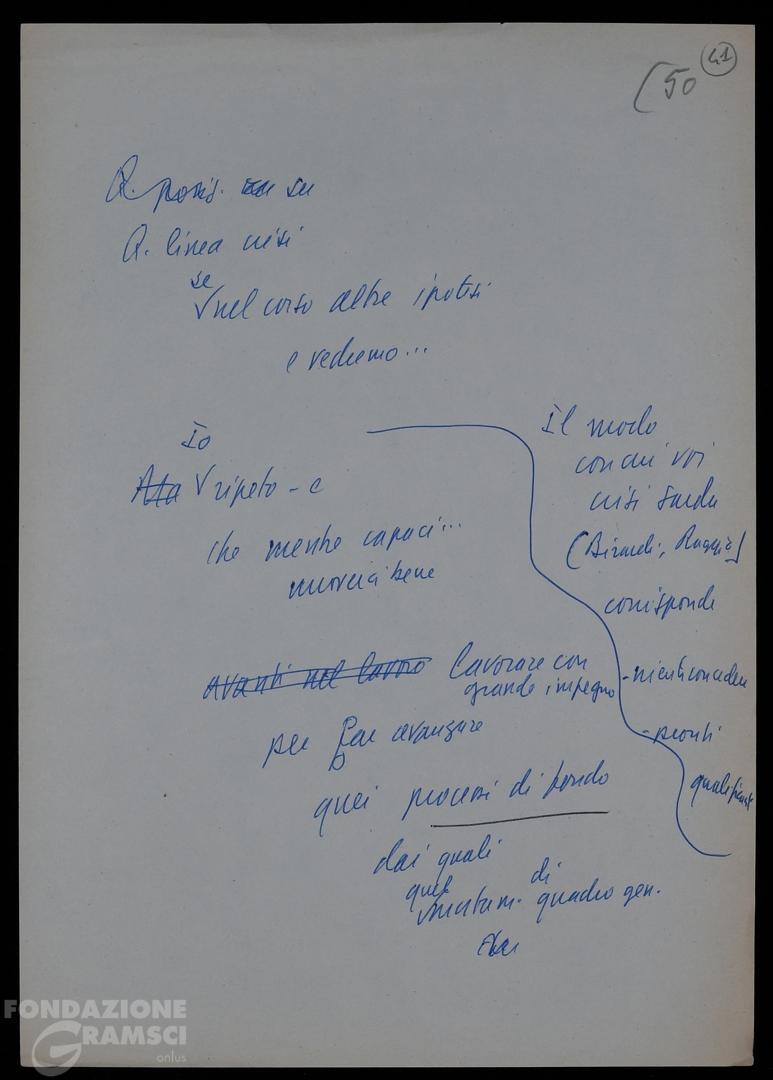 41
(50
Q. posiz. su
Q. linea crisi
se
nel corso altre ipotesi
e vedremo...
Io
Ma ripeto - e
che mentre capaci...
muoverci bene
avanti nel lavoro lavorare con
grande impegno
per far avanzare
quei processi di fondo
dai quali
quel
mutam. di quadro gen.
Il modo
con cui voi
crisi sarda
(Birardi, Raggio)
corrisponde
- nienti concedere
- pronti
FONDAZIONE
GRAMSCI
onlus